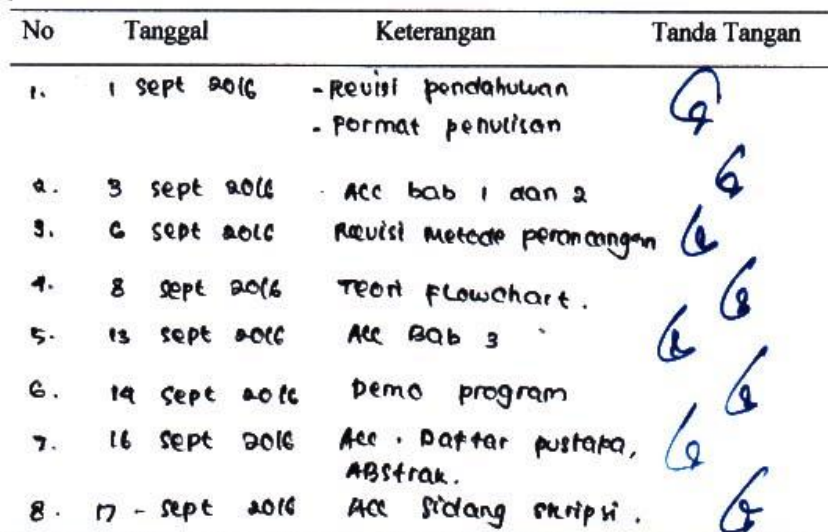 No Tanggal Keterangan Tanda Tangan
1. 1 sept 2016 - Revisi pendahuluan
- Format penulisan
2. 3 sept 2016 Acc bab 1 dan 2
3. 6 sept 2016 Revisi Metode perancangan
4. 8 sept 2016 Teori Flowchart.
5. 13 sept 2016 Acc Bab 3
6. 14 sept 2016 Demo program
7. 16 sept 2016 Acc. Daftar pustaka,
ABstrak.
8. 17 - sept 2016 Acc Sidang skripsi.